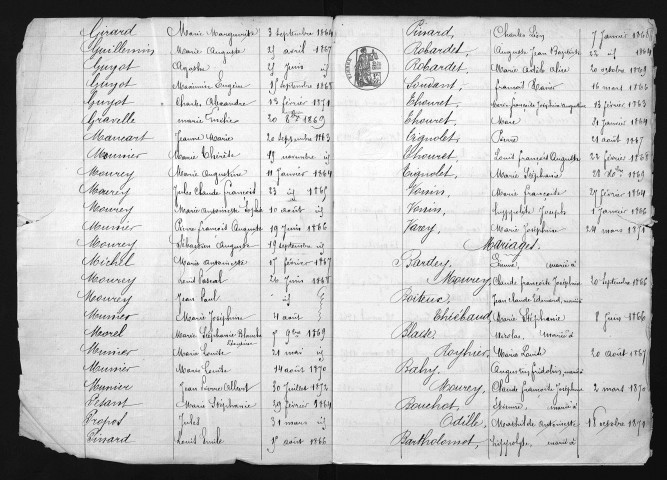 Girard Marie Marguerite 3 septembre 1864
Guillemin Marie Auguste 25 avril 1867
Guyot Agathe 25 Juin id
Guyot Maximin Eugène 15 septembre 1868
Guyot Charles Alexandre 13 février 1870
Graville marie Amélie 20 8bre 1869
Mancart Jeanne Marie 20 septembre 1863
Mounier Marie Thérèse 19 novembre id
Mourey Marie Augustine 11 Janvier 1864
Mourey Jules Claude François 23 id 1865
Mourey Marie Antoinette Sophie 10 août id
Munier Pierre François Auguste 19 Juin 1866
Mourey Sébastien Auguste 19 septembre id
Michel Marie Antoinette 15 février 1867
Mourey Louis Pascal 20 Juin 1868
Mourey Jean Paul id
Munier Marie Joséphine 4 août
Morel Marie Stéphanie Blanche 7 9bre 1869
Munier Marie Louise 21 mai id
Munier Marie Louise 14 août 1870
Munier Jean Pierre Albert 30 Juillet 1872
Pesant Marie Stéphanie 29 février 1864
Propos Jules 31 mars id
Pinard Louis Emile 15 août 1866
Pinard, Charles Léon 7 Janvier 1868
Robardet, Auguste Jean Baptiste 22 id 1864
Robardet, Marie Adèle Alice 20 octobre 1869
Soudant, François Xavier 16 mars 1866
Thouret, Marie françoise Joséphine Augustine 13 février 1863
Thouret, Marie 21 Janvier 1864
Tignolet, Pierre 21 août 1867
Thouret, Louis François Auguste 22 février 1868
Tignolet, Marie Stéphanie 28 Xbre 1869
Vonin, Marie françoise 27 février 1864
Vonin, hippolyte Joseph 1 Janvier 1866
Varey, Marie Joséphine 24 mars 1870
Mariages.
Bardey marié à
Mourey Claude françoise Joséphine 20 septembre 1866
Boiteux, Jean Claude Edmond, marié à
Thiébaud, Marie Stéphanie 8 Juin 1866
Blaise Nicolas, marié à
Royhier, Marie Louise 20 août 1867
Bahy, Augustin fridolin, marié à
Mourey, Claude françoise Joséphine 2 mars 1870
Bouchot, Etienne, marié à
Odille, Mathilde Antoinette 18 octobre 1870
Bartholomot, hippolyte, marié à